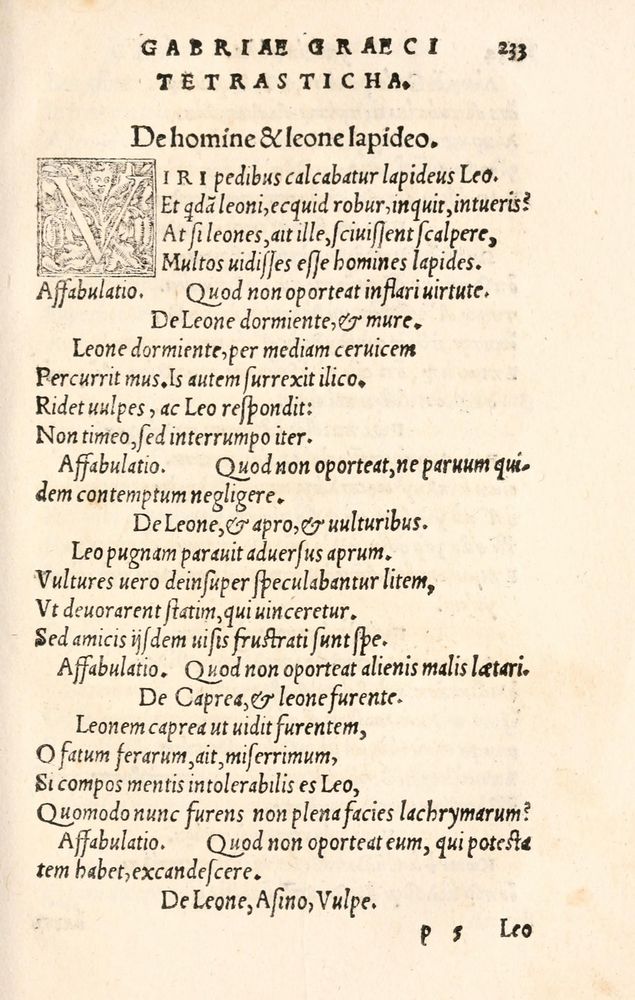 GABRIAE GRAECI 233
TETRASTICHA.
De homine & leone lapideo.
VIRI pedibus calcabatur lapideus Leo.
Et qdã leoni, ecquid robur, inquit, intueris?
At si leones, ait ille, sciuissent scalpere,
Multos uidisses esse homines lapides.
Affabulatio. Quod non oporteat inflari uirtute.
De Leone dormiente, & mure.
Leone dormiente, per mediam ceruicem
Percurrit mus. Is autem surrexit ilico.
Ridet uulpes, ac Leo respondit:
Non timeo, sed interrumpo iter.
Affabulatio. Quod non oporteat, ne paruum qui-
dem contemptum negligere.
De Leone, & apro, & uulturibus.
Leo pugnam parauit aduersus aprum.
Vultures uero deinsuper speculabantur litem,
Vt deuorarent statim, qui uinceretur.
Sed amicis ijsdem uisis frustrati sunt spe.
Affabulatio. Quod non oporteat alienis malis lætari.
De Caprea, & leone furente.
Leonem caprea ut uidit furentem,
O fatum ferarum, ait, miserrimum,
Si compos mentis intolerabilis es Leo,
Quomodo nunc furens non plena facies lachrymarum?
Affabulatio. Quod non oporteat eum, qui potesta
tem habet, excandescere.
De Leone, Asino, Vulpe.
p 5 Leo